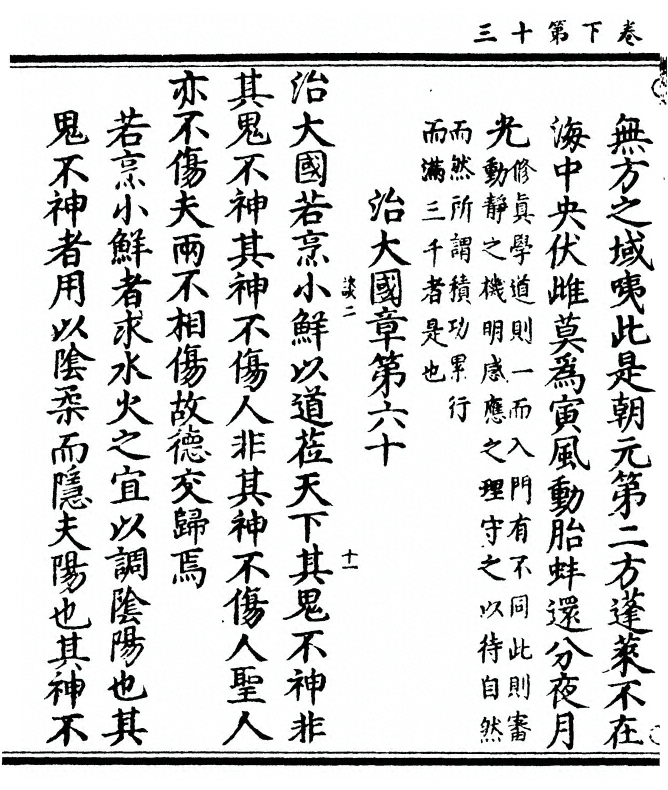 卷下第十三
無方之域咦此是朝元第二方蓬萊不在
海中央伏雌莫為寅風動胎蚌還分夜月
光修真學道則一而入門有不同此則審
動靜之機明感應之理守之以待自然
而然所謂積功累行
而滿三千者是也
治大國章第六十
談二
十一
治大國若烹小鮮以道莅天下其鬼不神非
其鬼不神其神不傷人非其神不傷人聖人
亦不傷夫兩不相傷故德交歸焉
若烹小鮮者求水火之宜以調陰陽也其
鬼不神者用以陰柔而隱夫陽也其神不